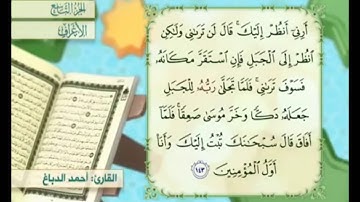 الجزء التاسع
الأعراف
أَرِنِىٓ أَنظُرْ إِلَيْكَ ۚ قَالَ لَن تَرَىٰنِى وَلَٰكِنِ
ٱنظُرْ إِلَى ٱلْجَبَلِ فَإِنِ ٱسْتَقَرَّ مَكَانَهُۥ
فَسَوْفَ تَرَىٰنِى ۚ فَلَمَّا تَجَلَّىٰ رَبُّهُۥ لِلْجَبَلِ
جَعَلَهُۥ دَكًّا وَخَرَّ مُوسَىٰ صَعِقًا ۚ فَلَمَّآ
أَفَاقَ قَالَ سُبْحَٰنَكَ تُبْتُ إِلَيْكَ وَأَنَا۠
أَوَّلُ ٱلْمُؤْمِنِينَ ١٤٣
القارئ: أحمد الدباغ